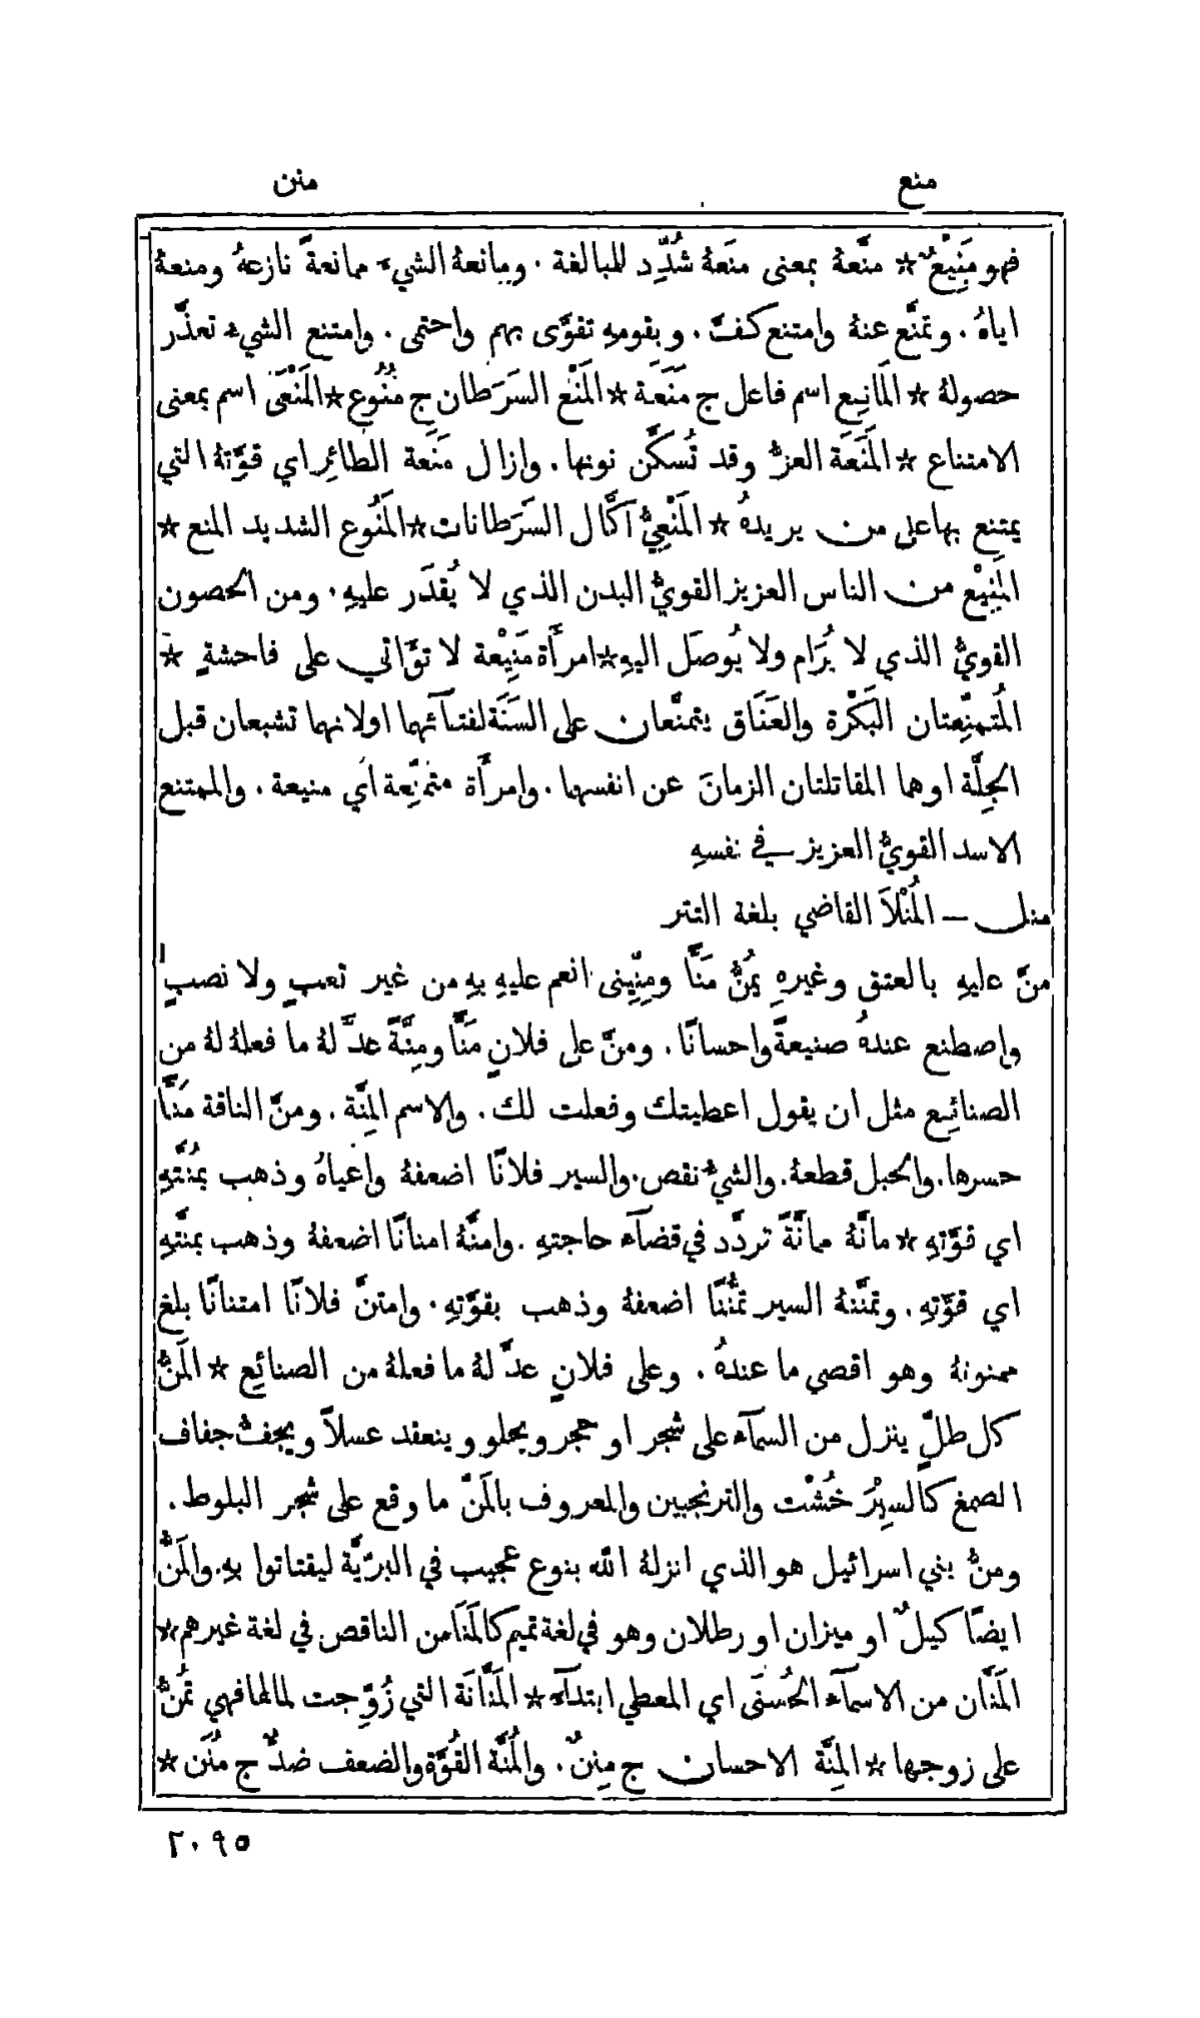 منع
منن
فهو مَنِيْعٌ ☆ منَّعهُ بمعنى منَعهُ شُدِّد للمبالغة . ومانعهُ الشيءَ ممانعةً نازعهُ ومنعهُ
اياهُ . وتمنَّع عنهُ وامتنع كفَّ . وبقومهِ تقوَّى بهم واحتمى . وامتنع الشيءُ تعذَّر
حصولهُ ☆ المَانِع اسم فاعل ج مَنَعَة ☆ المَنْع السَرَطان ج مُنُوع ☆ المَنْعَى اسم بمعنى
الامتناع ☆ المَنَعَة العزُّ وقد تُسكَّن نونها . وازال مَنَعة الطائِر اي قوَّتهُ التي
يمتنع بها على من يريدهُ ☆ المَنْعِيُّ اكَّال السَرَطانات ☆ المَنُوع الشديد المنع ☆
المَنِيْع من الناس العزيز القويُّ البدن الذي لا يُقدَر عليهِ . ومن الحصون
القويُّ الذي لا يُرَام ولا يُوصَل اليهِ ☆ امرأَة مَنِيْعة لا تؤَاتي على فاحشةٍ ☆
المُتمنِّعتان البَكْرة والعَنَاق يتمنَّعان على السَنَة لفتآئها او لانها تشبعان قبل
الجِلَّة او هما المقاتلتان الزمانَ عن انفسها . وامرأَة متمنِّعة اي منيعة . والممتنع
الاسد القويُّ العزيز في نفسهِ
منل — المُنْلاَ القاضي بلغة التتر
منَّ عليهِ بالعتق وغيرهِ يمُنُّ مَنًّا ومِنِّينى انعم عليهِ بهِ من غير تعبٍ ولا نصبٍ
واصطنع عندهُ صنيعةً واحسانًا . ومنَّ على فلانٍ مَنًّا ومِنَّةً عدَّ لهُ ما فعلهُ لهُ من
الصنائِع مثل ان يقول اعطيتك وفعلت لك . والاسم المِنَّة . ومنَّ الناقة مَنًّا
حسرها . والحبل قطعهُ . والشيءُ نقص . والسير فلانًا اضعفهُ واعياهُ وذهب بمُنَّتهِ
اي قوَّتهِ ☆ مانَّهُ ممانَّةً تردَّد في قضآء حاجتهِ . وامنَّهُ امنانًا اضعفهُ وذهب بمنَّتهِ
اي قوَّتهِ . وتمنَّنهُ السير تمنُّنًا اضعفهُ وذهب بقوَّتهِ . وامتنَّ فلانًا امتنانًا بلغ
ممنونهُ وهو اقصى ما عندهُ . وعلى فلانٍ عدَّ لهُ ما فعلهُ من الصنائِع ☆ المَنُّ
كل طلٍّ ينزل من السمآء على شجر او حجر ويحلو وينعقد عسلاً ويجفُّ جفاف
الصمغ كالسِيْرَ خُشْت والترنجبين والمعروف بالمَنّ ما وقع على شجر البلوط .
ومنُّ بني اسرائيل هو الذي انزلهُ الله بنوع عجيب في البريَّة ليقتاتوا بهِ . والمَنُّ
ايضًا كيلٌ او ميزان او رطلان وهو في لغة تميم كالمَنَا من الناقص في لغة غيرهم ☆
المَنَّان من الاسمآء الحُسنَى اي المعطي ابتدآءً ☆ المَنَّانَة التي زُوِّجت لمالها فهي تمُنُّ
على زوجها ☆ المِنَّة الاحسان ج مِنَنٌ . والمُنَّة القُوَّة والضعف ضدٌّ ج مُنَن ☆
٢٠٩٥